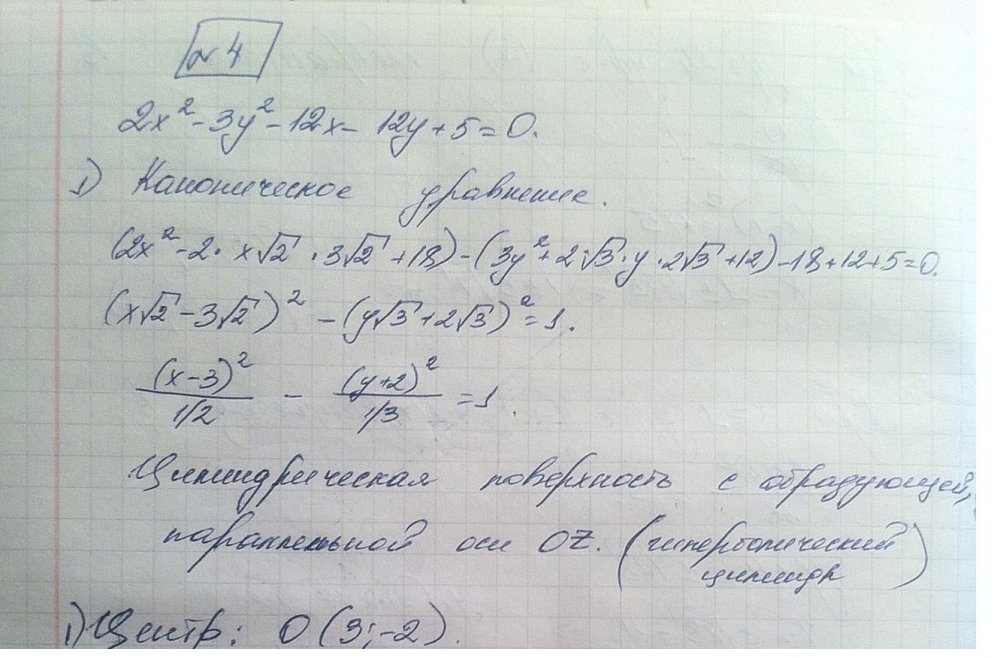 № 4
2x² - 3y² - 12x - 12y + 5 = 0.
1) Каноническое уравнение.
(2x² - 2 · x√2 · 3√2 + 18) - (3y² + 2·√3 · y · 2√3 + 12) - 18 + 12 + 5 = 0.
(x√2 - 3√2)² - (y√3 + 2√3)² = 1.
(x-3)²/1/2 - (y+2)²/1/3 = 1.
Цилиндрическая поверхность с образующей,
параллельной оси OZ. (гиперболический
цилиндр)
1) Центр: O (3; -2).